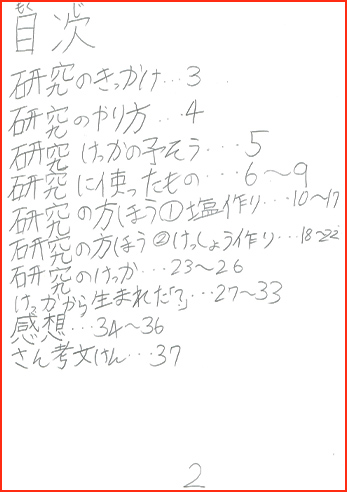 もくじ
目次
研究のきっかけ…3
研究のやり方…4
研究けっかの予そう…5
研究に使ったもの…6～9
研究の方ほう①塩作り…10～17
研究の方ほう②けっしょう作り…18～22
研究のけっか…23～26
けっかから生まれた「?」…27～33
感想…34～36
さん考文けん…37
2